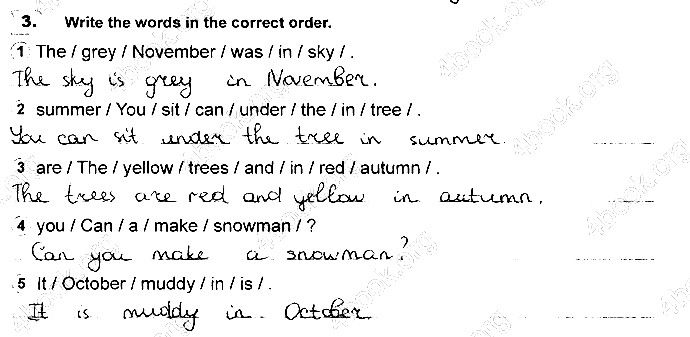 3. Write the words in the correct order.
1 The / grey / November / was / in / sky / .
The sky is grey in November.
2 summer / You / sit / can / under / the / in / tree / .
You can sit under the tree in summer
3 are / The / yellow / trees / and / in / red / autumn / .
The trees are red and yellow in autumn.
4 you / Can / a / make / snowman / ?
Can you make a snowman?
5 it / October / muddy / in / is / .
It is muddy in October
4book.org
4book.org
4book.org
4book.org
4book.org
4book.org